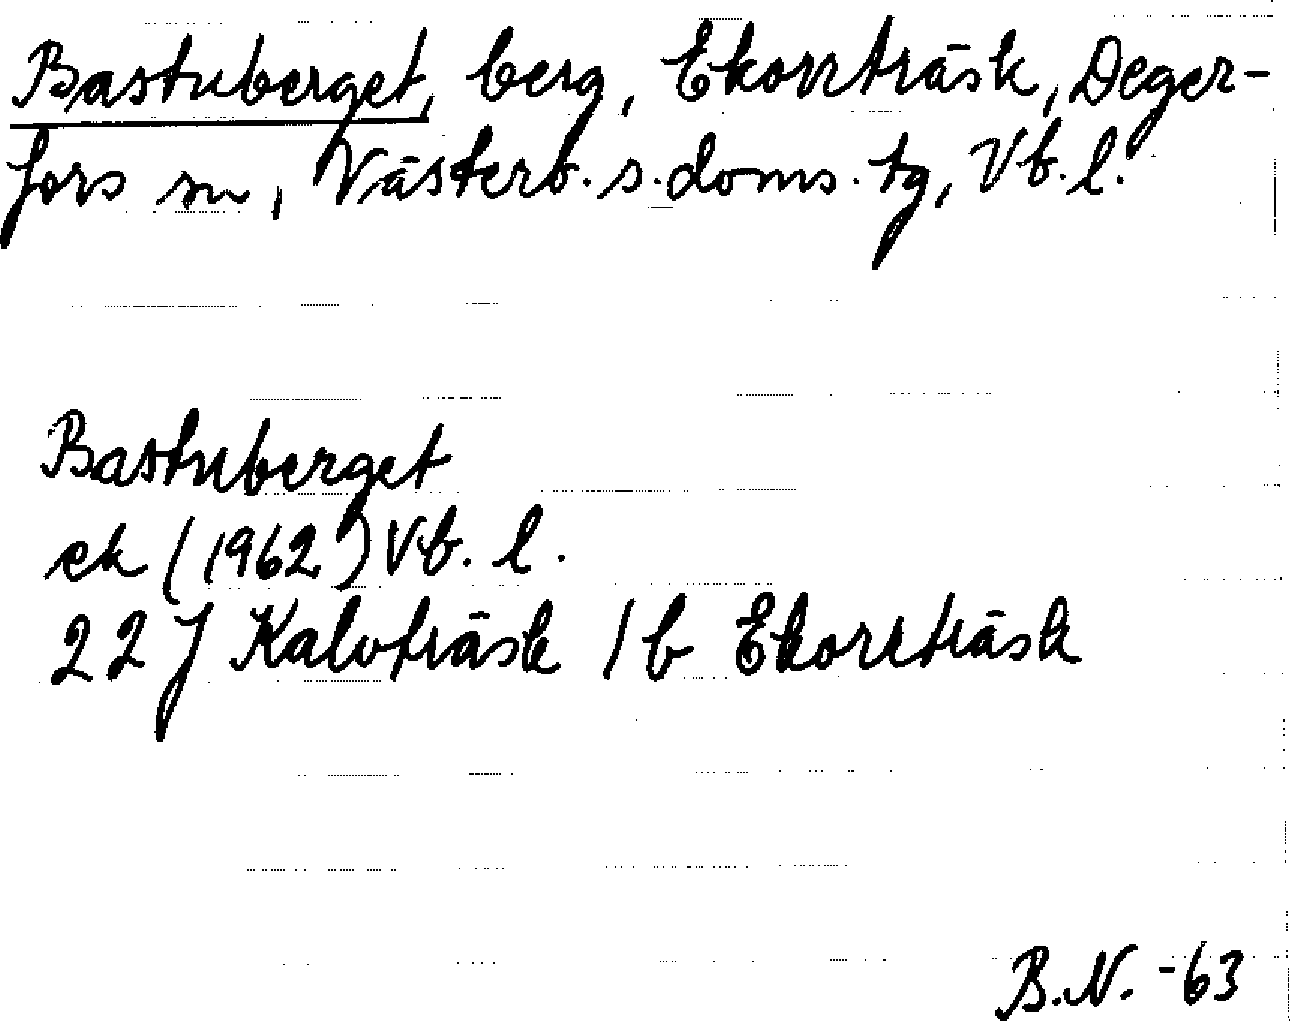 Bastuberget, berg, Ekorrträsk, Deger-
fors sn, Västerb. s. doms. tg, Vb. l.
Bastuberget
ek (1962) Vb. l.
22 J Kalvträsk 1b Ekorrträsk
B.N. -63